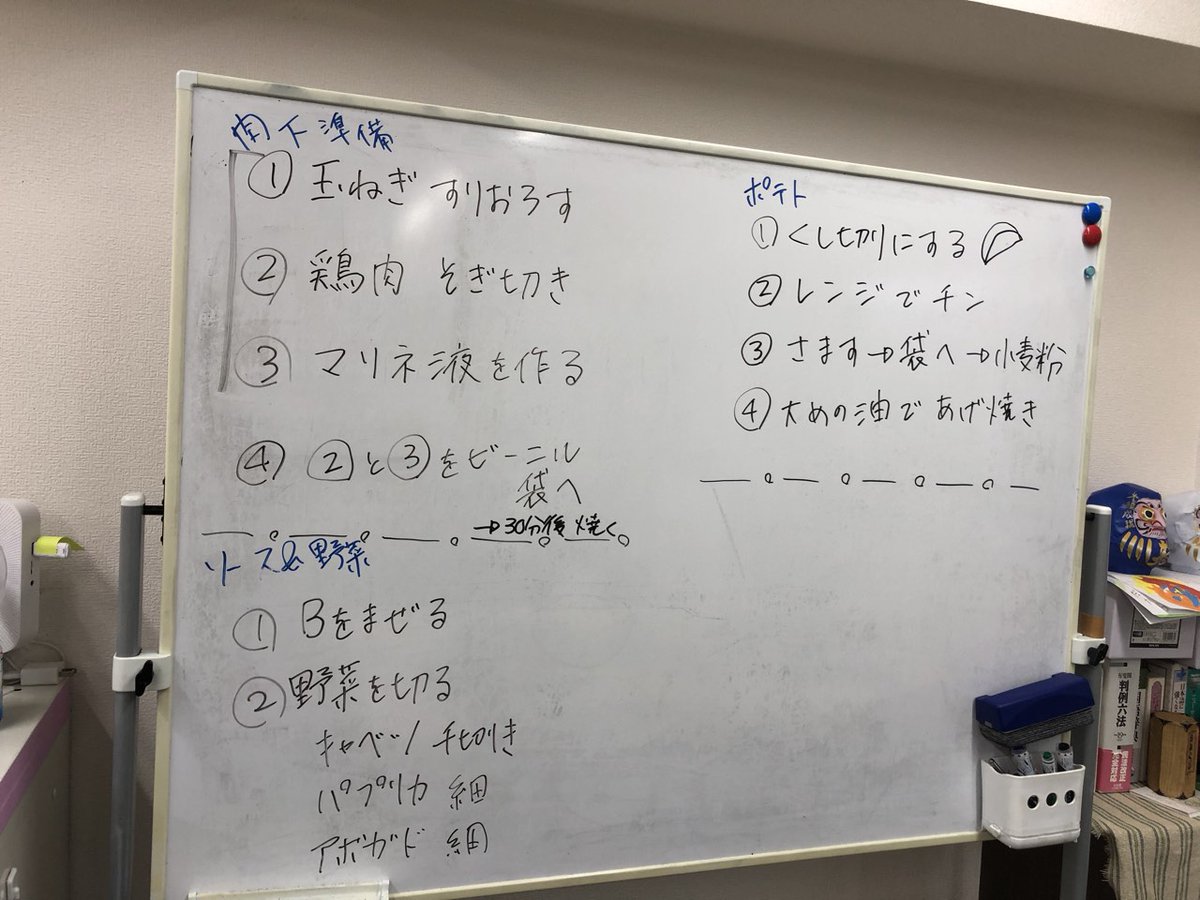 肉下準備
① 玉ねぎ すりおろす
② 鶏肉 そぎ切き
③ マリネ液を作る
④ ②と③をビーニル
袋へ
→30分後 焼く
ソース&野菜
① Bをまぜる
② 野菜を切る
キャベツ 千切りき
パプリカ 細
アボガド 細
ポテト
① くし切りにする
② レンジでチン
③ さます→袋へ→小麦粉
④ 太めの油であげ焼き
判例六法
完全対応